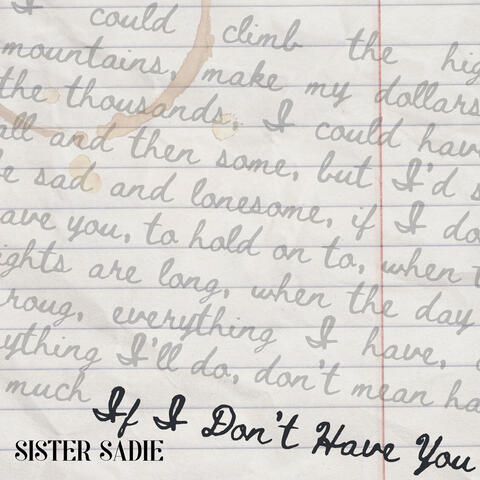 I could climb the hig
mountains, make my dollars
the thousands. I could have
all and then some, but I'd s
e sad and lonesome, if I do
ave you, to hold on to, when t
ights are long, when the day
roug, everything I have,
ything I'll do, don't mean ha
much
If I Don't Have You
SISTER SADIE